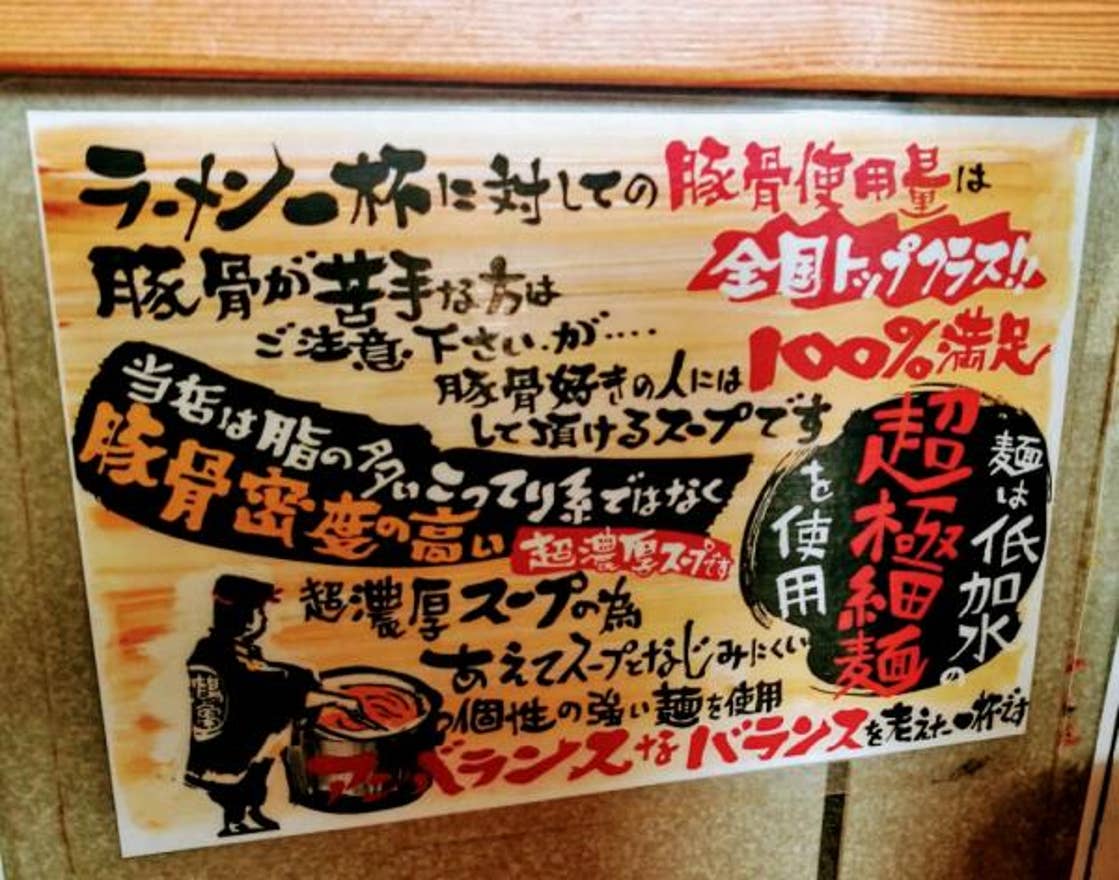 ラーメン一杯に対しての豚骨使用量は
全国トップクラス!!
豚骨が苦手な方は
ご注意下さい.が....
豚骨好きの人には100%満足
して頂けるスープです
当店は脂の多いこってり系ではなく
豚骨密度の高い超濃厚スープです
麺は低加水の
超極細麺
を使用
超濃厚スープの為
あえてスープとなじみにくい
個性の強い麺を使用
アンバランスなバランスを考えた一杯です